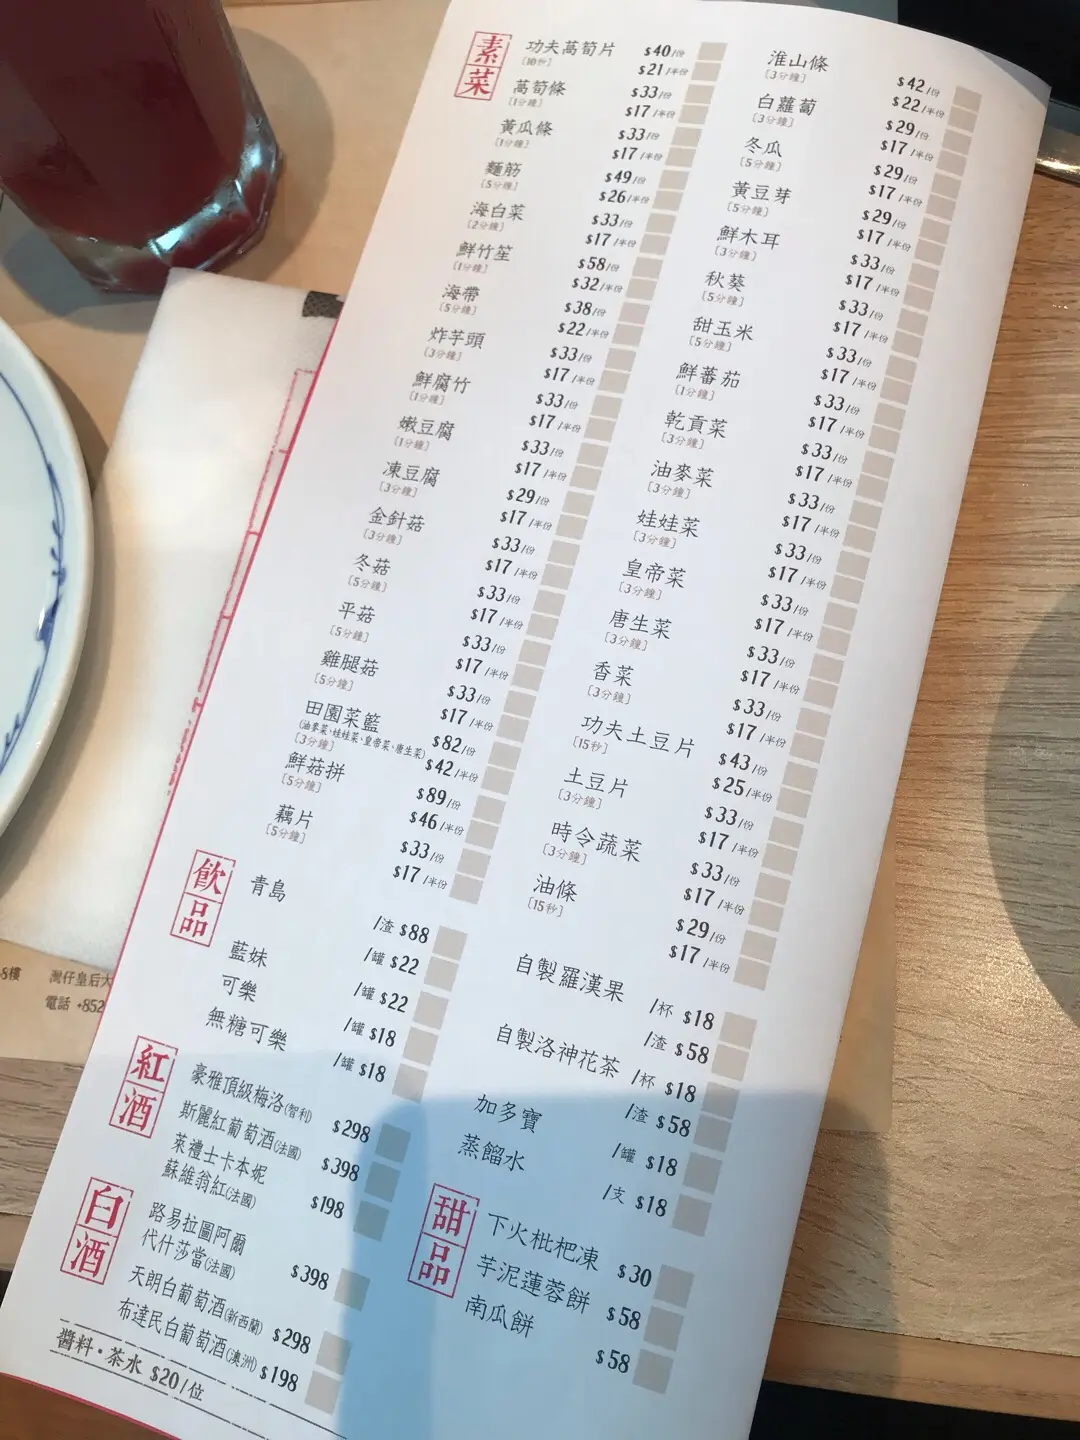 素菜
功夫萵筍片 $40/份
[10秒] $21/半份
萵筍條 $33/份
[1分鐘] $17/半份
黃瓜條 $33/份
[1分鐘] $17/半份
麵筋 $49/份
[5分鐘] $26/半份
海白菜 $33/份
[2分鐘] $17/半份
鮮竹笙 $58/份
[1分鐘] $32/半份
海帶 $38/份
[5分鐘] $22/半份
炸芋頭 $33/份
[3分鐘] $17/半份
鮮腐竹 $33/份
[1分鐘] $17/半份
嫩豆腐 $33/份
[1分鐘] $17/半份
凍豆腐 $29/份
[3分鐘] $17/半份
金針菇 $33/份
[3分鐘] $17/半份
冬菇 $33/份
[5分鐘] $17/半份
平菇 $33/份
[5分鐘] $17/半份
雞腿菇 $33/份
[5分鐘] $17/半份
田園菜籃 $82/份
(油麥菜、娃娃菜、皇帝菜、唐生菜)
[3分鐘] $42/半份
鮮菇拼 $89/份
[5分鐘] $46/半份
藕片 $33/份
[5分鐘] $17/半份
淮山條 $42/份
[3分鐘] $22/半份
白蘿蔔 $29/份
[3分鐘] $17/半份
冬瓜 $29/份
[5分鐘] $17/半份
黃豆芽 $29/份
[5分鐘] $17/半份
鮮木耳 $33/份
[3分鐘] $17/半份
秋葵 $33/份
[5分鐘] $17/半份
甜玉米 $33/份
[5分鐘] $17/半份
鮮蕃茄 $33/份
[1分鐘] $17/半份
乾貢菜 $33/份
[3分鐘] $17/半份
油麥菜 $33/份
[3分鐘] $17/半份
娃娃菜 $33/份
[3分鐘] $17/半份
皇帝菜 $33/份
[3分鐘] $17/半份
唐生菜 $33/份
[3分鐘] $17/半份
香菜 $33/份
[3分鐘] $17/半份
功夫土豆片 $43/份
[15秒] $25/半份
土豆片 $33/份
[3分鐘] $17/半份
時令蔬菜 $33/份
[3分鐘] $17/半份
油條 $29/份
[15秒] $17/半份
飲品
青島 /渣 $88
/罐 $22
藍妹 /罐 $22
可樂 /罐 $18
無糖可樂 /罐 $18
自製羅漢果 /杯 $18
/渣 $58
自製洛神花茶 /杯 $18
/渣 $58
加多寶 /罐 $18
蒸餾水 /支 $18
紅酒
豪雅頂級梅洛(智利) $298
斯麗紅葡萄酒(法國) $398
萊禮士卡本妮
蘇維翁紅(法國) $198
白酒
路易拉圖阿爾
代什莎當(法國) $398
天朗白葡萄酒(新西蘭) $298
布達民白葡萄酒(澳洲) $198
甜品
下火枇杷凍 $30
芋泥蓮蓉餅 $58
南瓜餅 $58
醬料·茶水 $20/位
8樓 灣仔皇后大
電話 +852